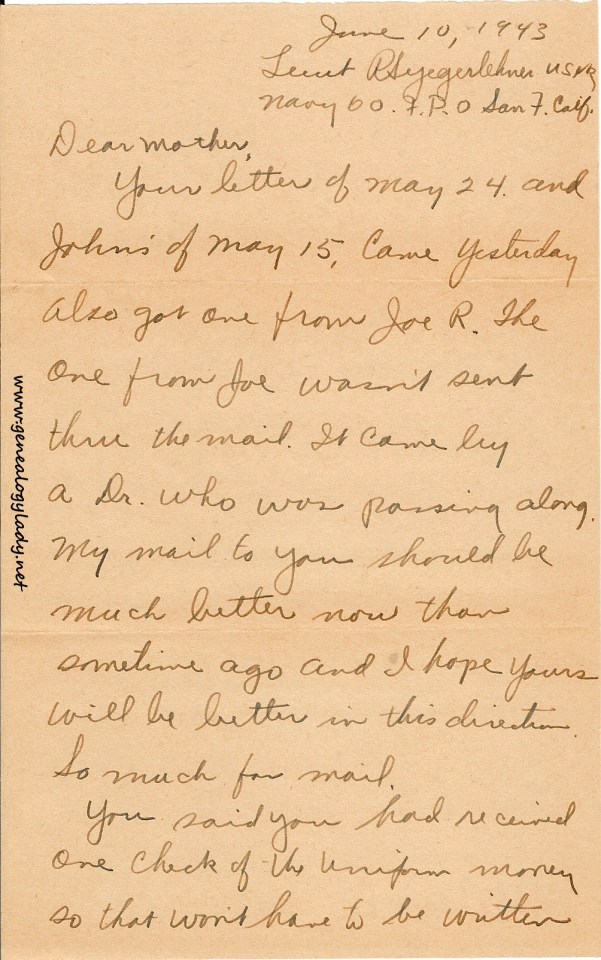 June 10, 1943
Lieut RSYegerlehner USNR
Navy 60. F.P.O San F. Calif.
Dear mother,
Your letter of may 24. and
John's of may 15, Came yesterday
Also got one from Joe R. The
One from Joe wasn't sent
thru the mail. It Came by
a Dr. who was passing along.
My mail to you should be
much better now than
sometime ago and I hope yours
will be better in this direction.
So much for mail.
You said you had received
One check of the uniform money
so that won't have to be written
www.genealogylady.net